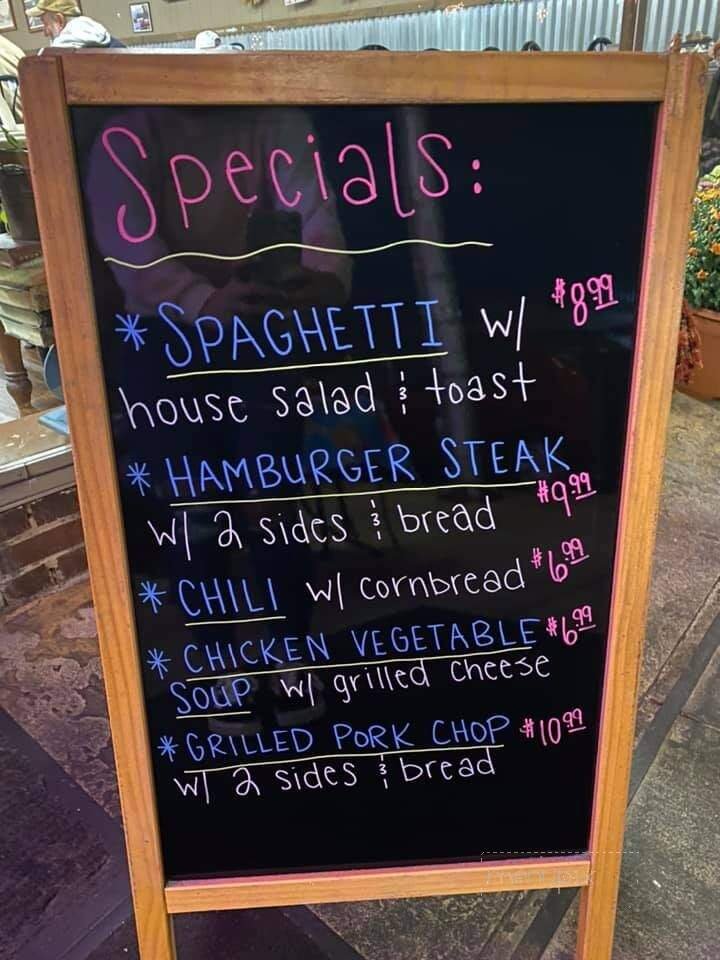 Specials:
* SPAGHETTI w/ $8.99
house salad & toast
* HAMBURGER STEAK
w/ 2 sides & bread $9.99
* CHILI w/ cornbread $6.99
* CHICKEN VEGETABLE $6.99
SOUP w/ grilled cheese
* GRILLED PORK CHOP $10.99
w/ 2 sides & bread